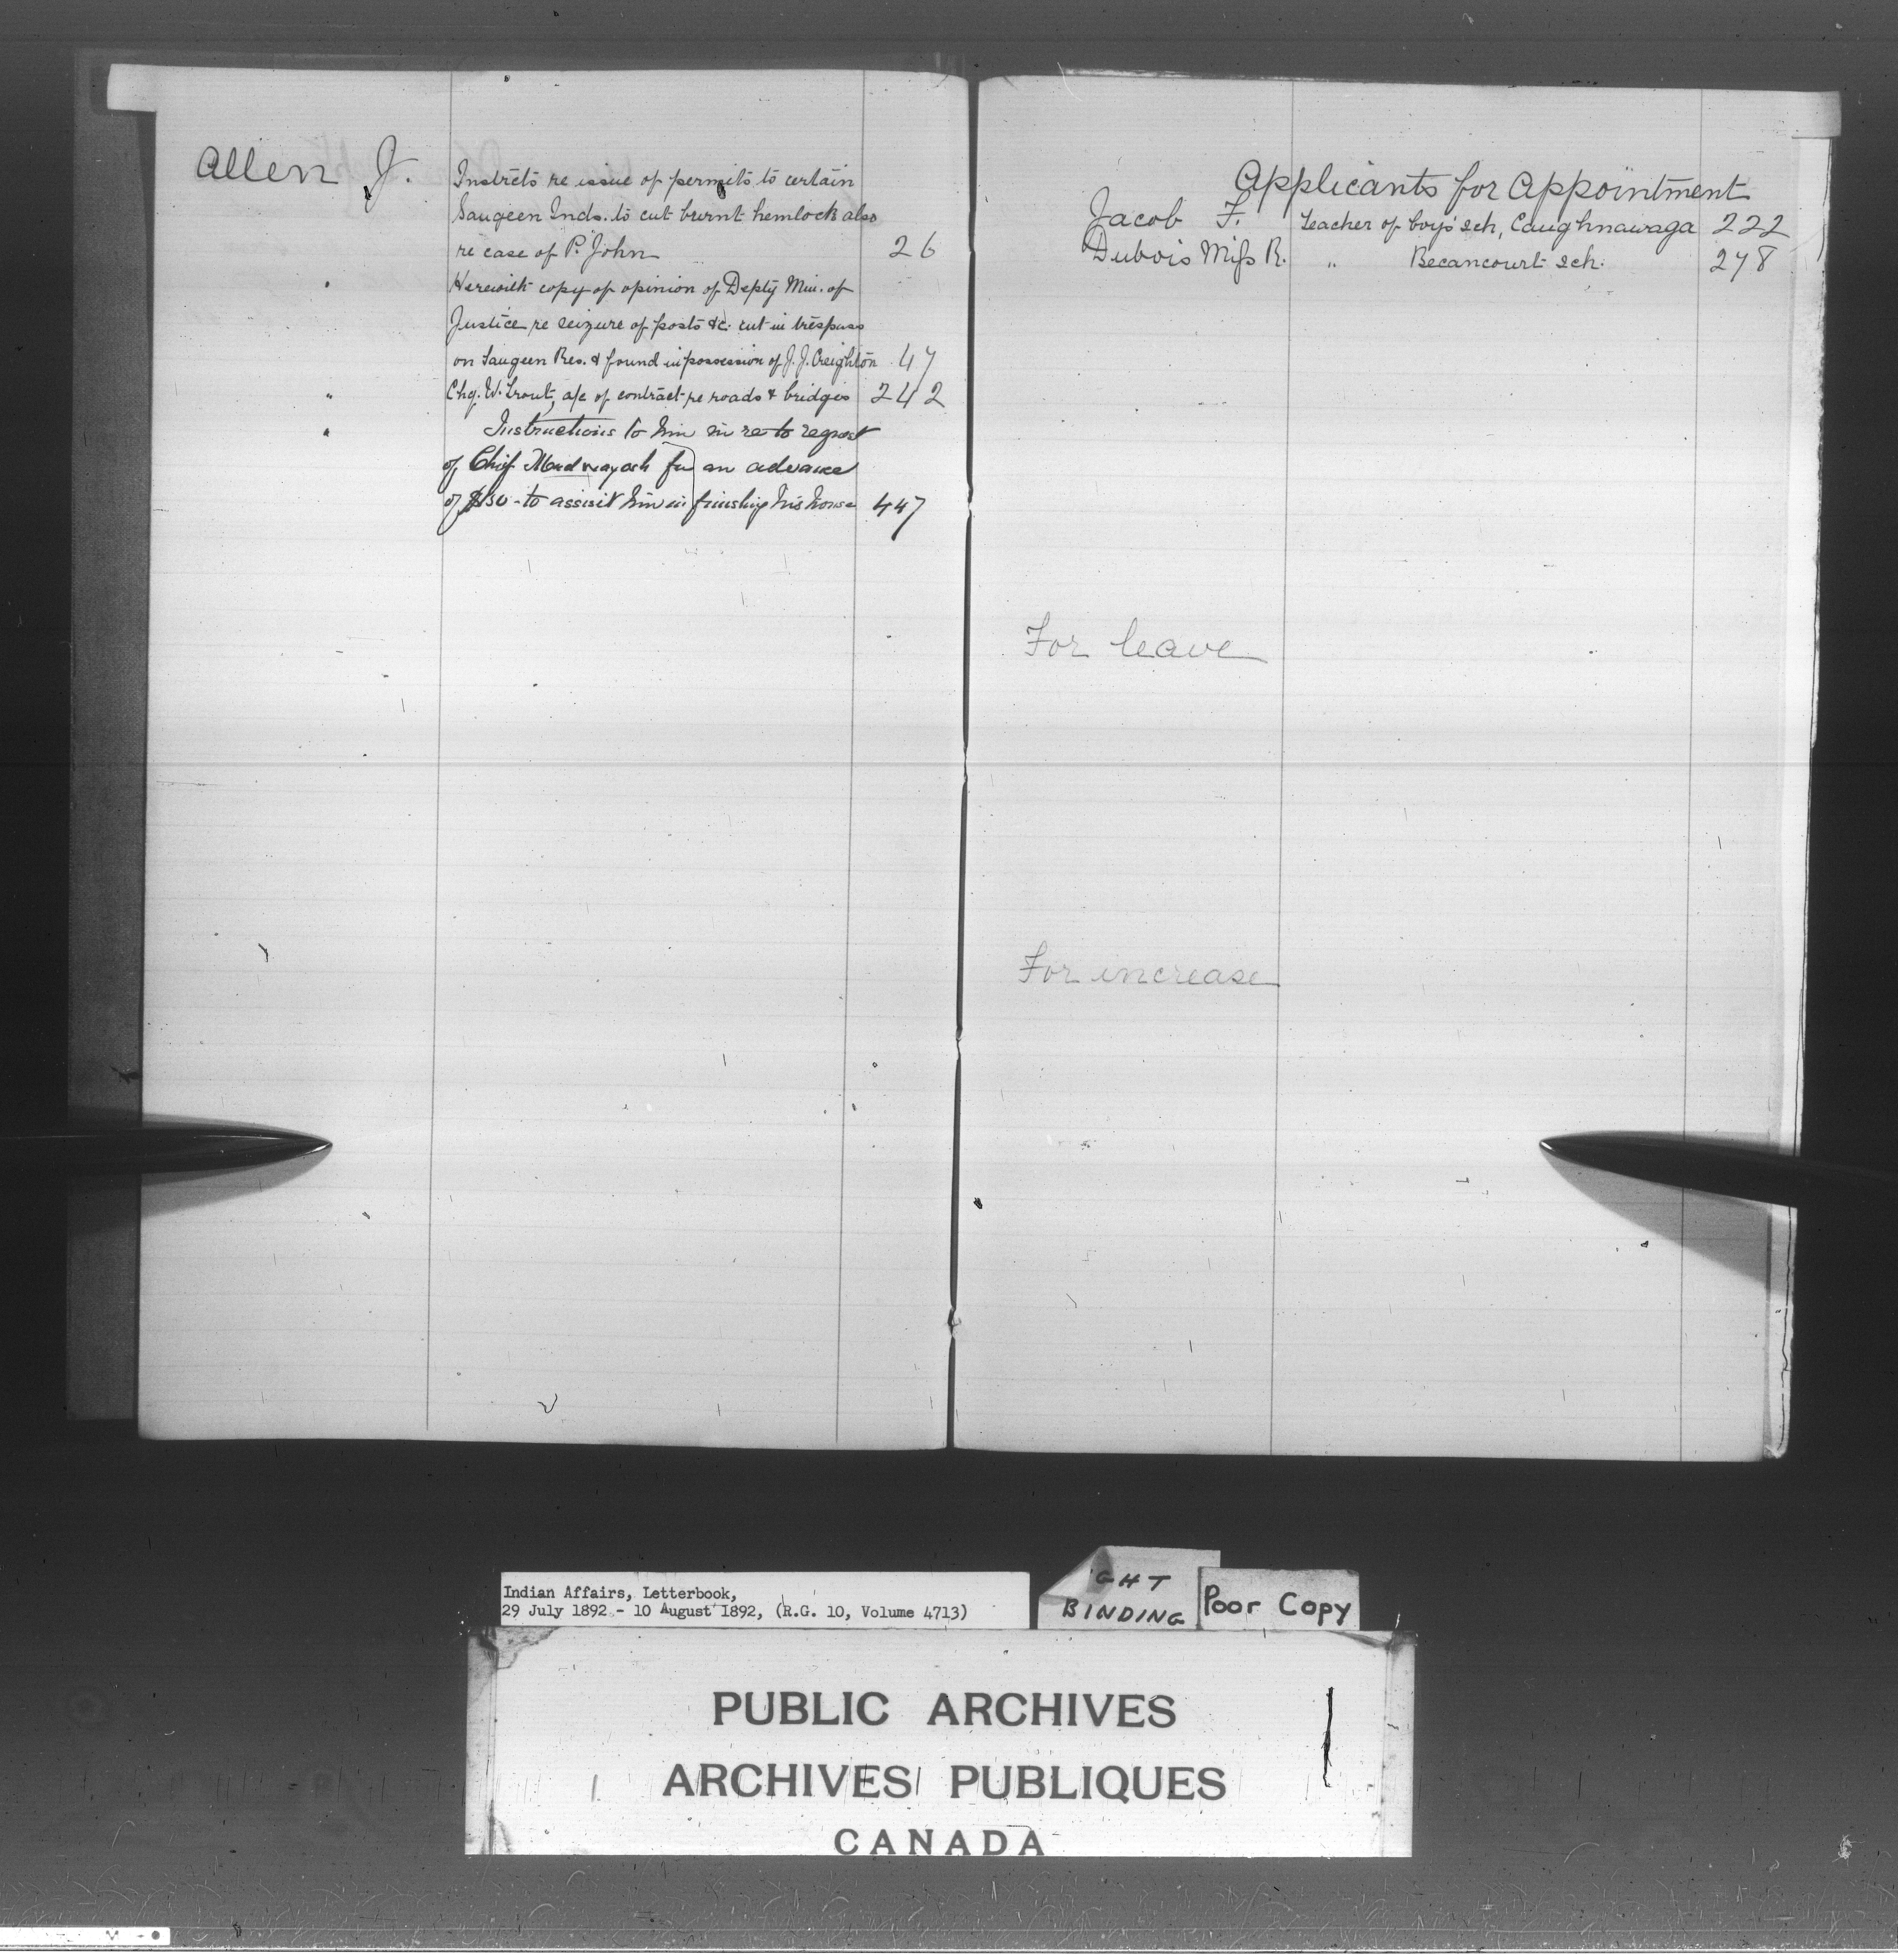 Allen J.
Instrcts re issue of permits to certain
Saugeen Inds. to cut burnt hemlock also
re case of P. John 26
" Herewith copy of opinion of Depty Min. of
Justice re seizure of posts &c. cut in trespass
on Saugeen Res. & found in possession of J. J. Creighton 47
" Chq. W. Trout, a/c of contract re roads & bridges 242
" Instructions to him in re to reqost
of Chief Madwayosh for an advance
of $30 - to assisit him in finishing his house 447
Applicants for Appointment
Jacob F. Teacher of boys' sch, Caughnawaga 222
Dubois Miss R. " Becancourt sch. 278
For leave
For increase
Indian Affairs, Letterbook,
29 July 1892 - 10 August 1892, (R.G. 10, Volume 4713)
GHT
BINDING
Poor Copy
PUBLIC ARCHIVES
ARCHIVES PUBLIQUES
CANADA